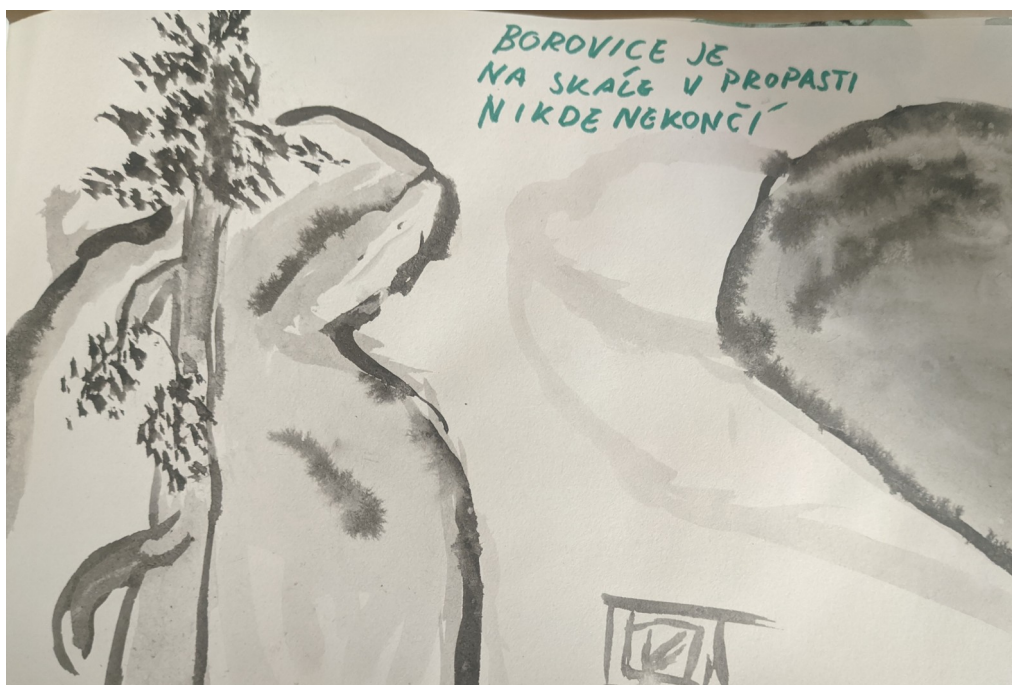 BOROVICE JE
NA SKÁLE V PROPASTI
NIKDE NEKONČÍ